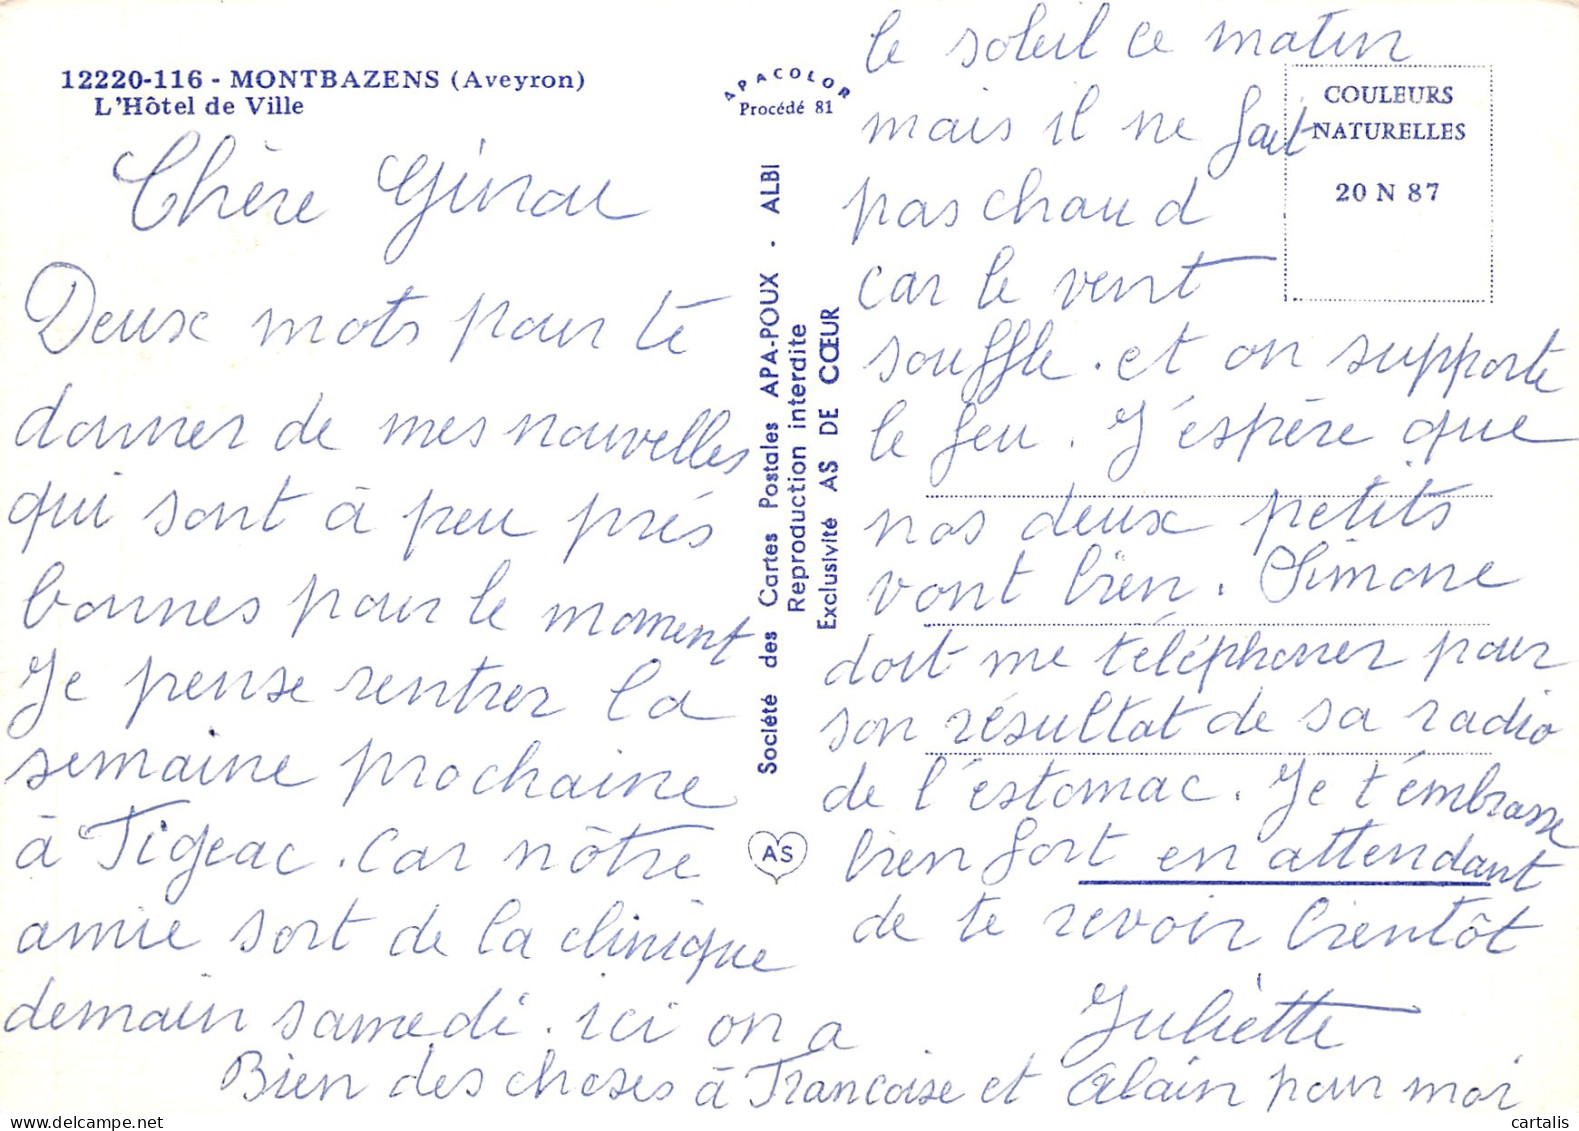 12220-116 - MONTBAZENS (Aveyron)
L'Hôtel de Ville
APACOLOR
Procédé 81
COULEURS
NATURELLES
20 N 87
Société des Cartes Postales APA-POUX - ALBI
Reproduction interdite
Exclusivité AS DE CŒUR
AS
Chère
Deux mots pour te
donner de mes nouvelles
qui sont à peu près
bonnes pour le moment
Je pense rentrer la
semaine prochaine
à Figeac. Car nôtre
amie sort de la clinique
demain samedi. ici on a
le soleil ce matin
mais il ne fait
pas chaud
car le vent
souffle. et on supporte
le feu. J'espère que
nos deux petits
vont bien. Simone
doit me téléphoner pour
son résultat de sa radio
de l'estomac. Je t'embrasse
bien fort en attendant
de te revoir bientôt
Juliette
Bien des choses à Francoise et Alain pour moi
cartalis